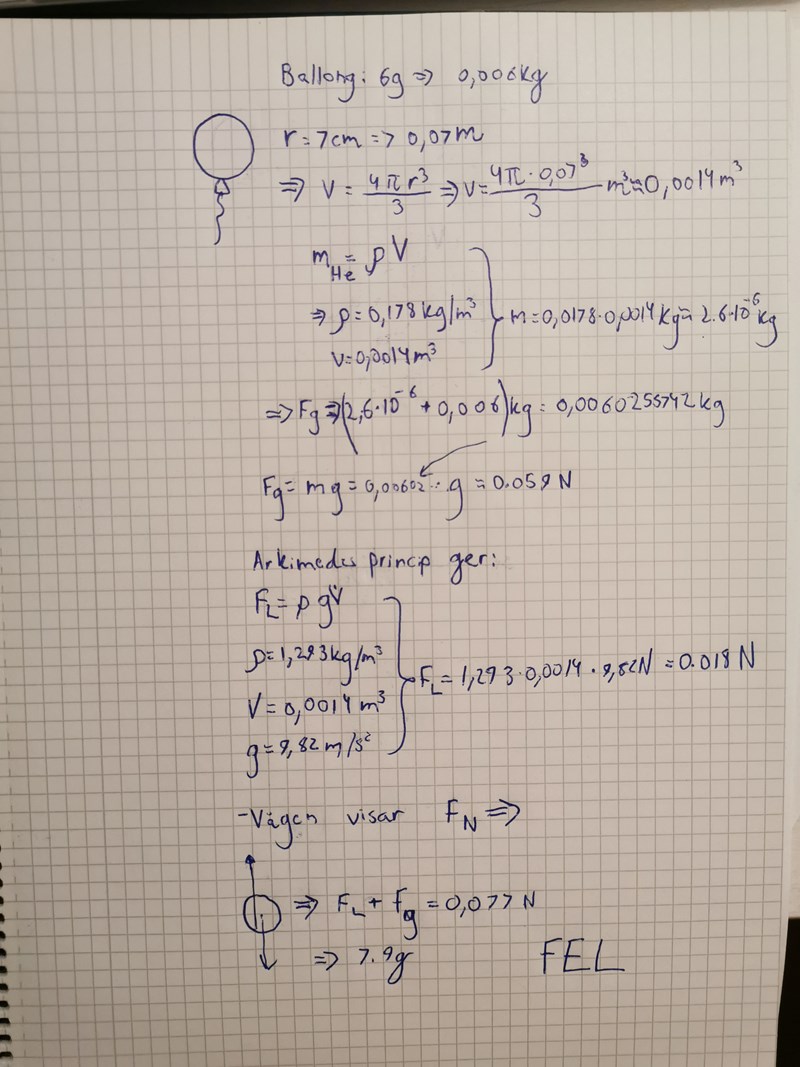 Ballong: 6g => 0,006kg
r = 7cm => 0,07m
=> V = 4πr³/3 => V = 4π·0,07³/3 m³ ≈ 0,0014m³
m_He = ρV
=> ρ = 0,178kg/m³
V = 0,0014m³
m = 0,0178·0,0014kg ≈ 2.6·10⁻⁶kg
=> Fg => (2,6·10⁻⁶ + 0,006)kg = 0,0060255742kg
Fg = mg = 0,00602...g = 0.059N
Arkimedes princip ger:
F_L = ρgV
ρ = 1,293kg/m³
V = 0,0014m³
g = 9,82m/s²
F_L = 1,293·0,0014·9,82N = 0.018N
-Vågen visar F_N =>
=> F_L + Fg = 0,077N
=> 7.9g
FEL